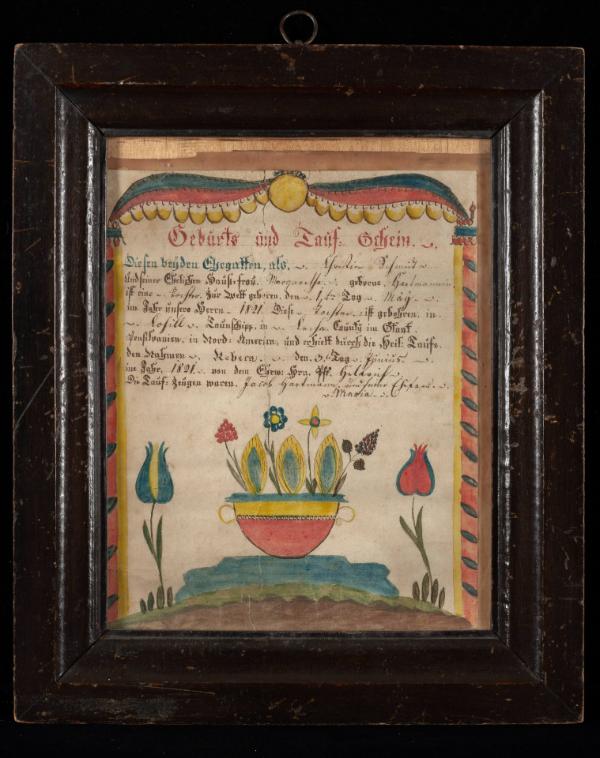 Gebürts und Tauf- Schein.
Diesen beyden Ehegatten, als. Christian Schmidt
und seiner Ehelichen Hausfrau. Margaretha geborne Hartmannin
ist eine Tochter zur Welt geboren, den 1. Tag May
im Jahr unsers Herrn 1821. Diese Tochter ist gebohren, in
Taunschip, in Lecha Caunty im Staat
Pensilvanien, in Nord America, und erhielt durch die Heil. Taufe
den Nahmen Rebeca. den 3. Tag Junius
im Jahr, 1821. von dem Ehrw. Hrn. Pf. Helfrich
Die Tauf- Zeugen waren. Jacob Hartmann und seine Ehefrau
Maria